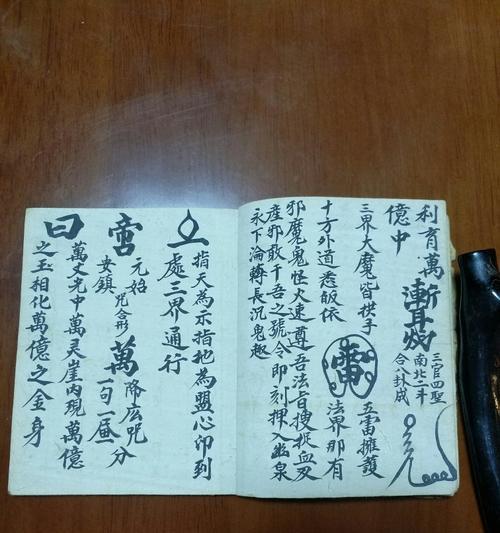 利育萬
億中
三官四聖
南北二斗
合八卦成
三界大魔皆拱手
五雷擁護
十方外道悉皈依
雷
法界那有
邪魔鬼怪火速遵吾法旨搜捉血及
產邪敢干吾之號令即刻押入幽泉
永下淪轉長沉鬼趣
指天為示指地為盟心印到
處三界通行
元始
安鎮
咒合形
萬
降広咒分
一句一叠
曰
萬丈光中萬灵崖内現萬億
之玉相化萬億之金身